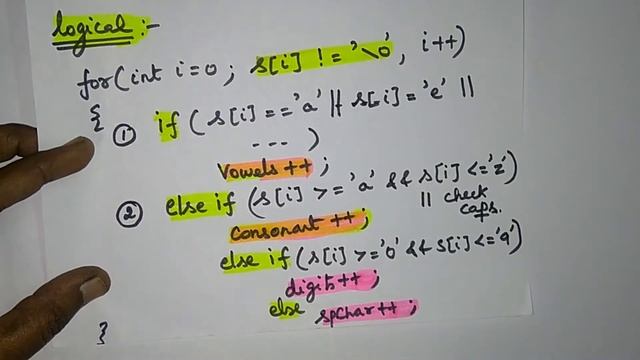 logical:-
for(int i=0; s[i] != '\0', i++)
{
① if (s[i]=='a' || s[i]='e' ||
--- )
Vowels ++;
② else if (s[i] >= 'a' && s[i] <='z')
|| check caps.
consonant ++;
else if (s[i] >='0' && s[i] <='9')
digit ++;
else spchar ++;
}